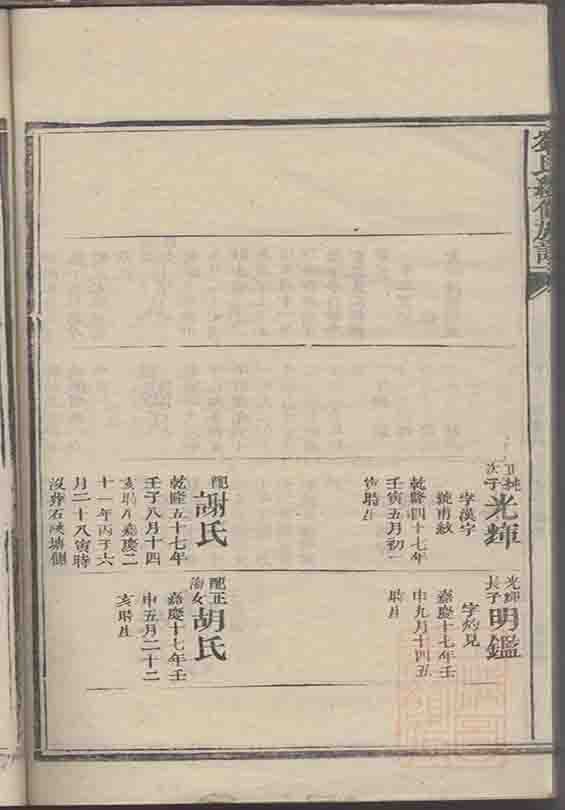 氏續修族譜
正桃
次子
光輝
字漢字
號甫紋
乾隆四十七年
壬寅五月初一
寅時生
配
謝氏
乾隆五十七年
壬子八月十四
亥時生嘉慶二
十一年丙子六
月二十八寅時
沒葬石
塘側
光輝
長子
明鑑
字灼見
嘉慶十七年壬
申九月十四五
時生
配正
海女
胡氏
嘉慶十七年壬
申五月二十二
亥時生